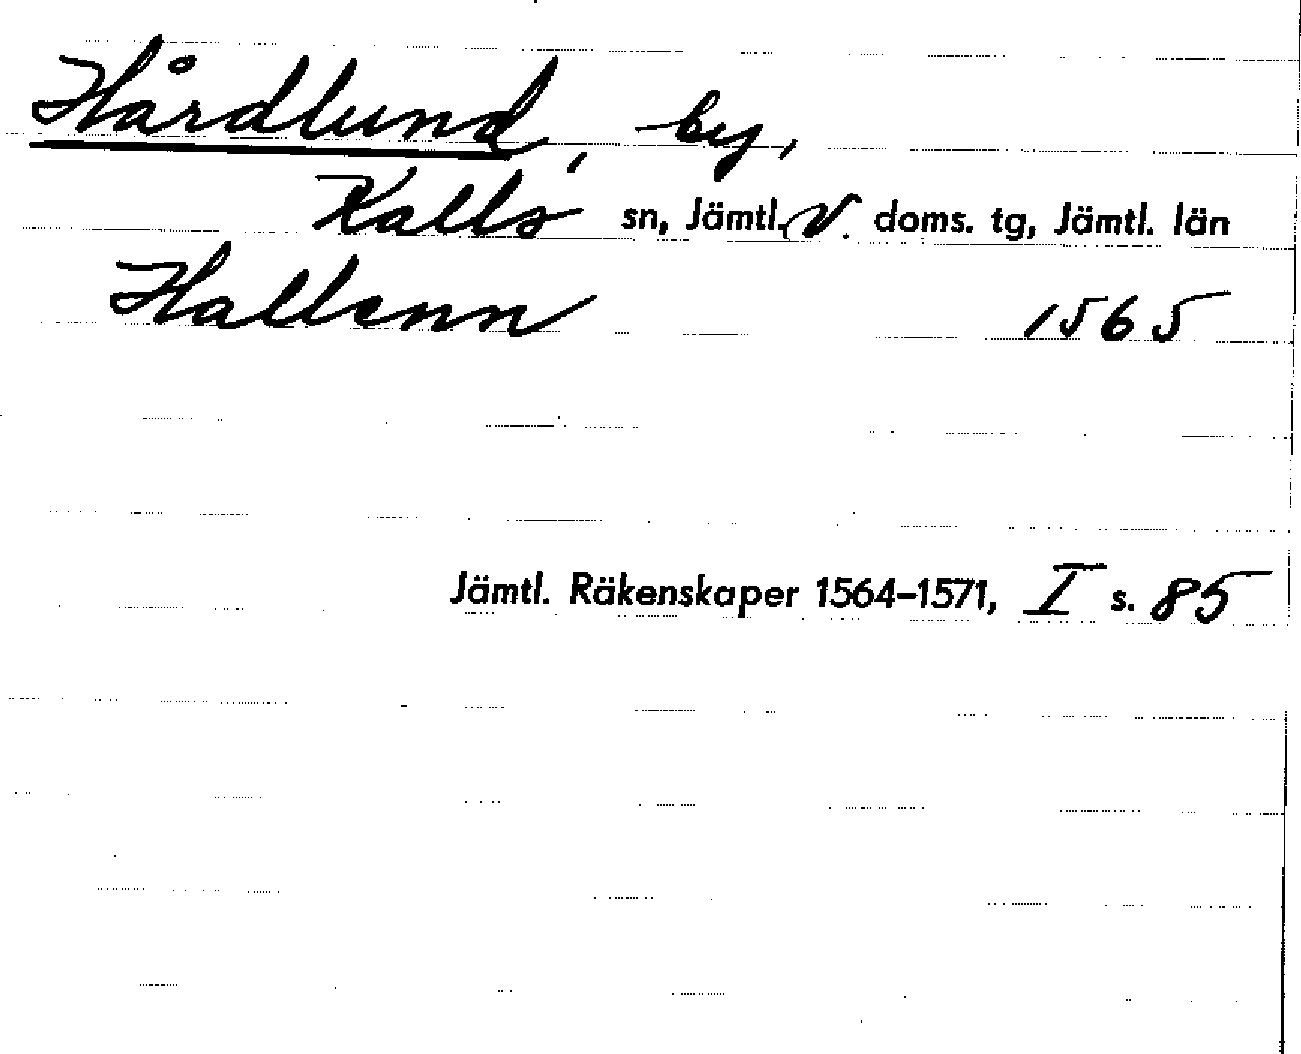 Hårdlund, by,
Kalls sn, Jämtl. V. doms. tg, Jämtl. län
Hallenn 1565
Jämtl. Räkenskaper 1564–1571, I s. 85